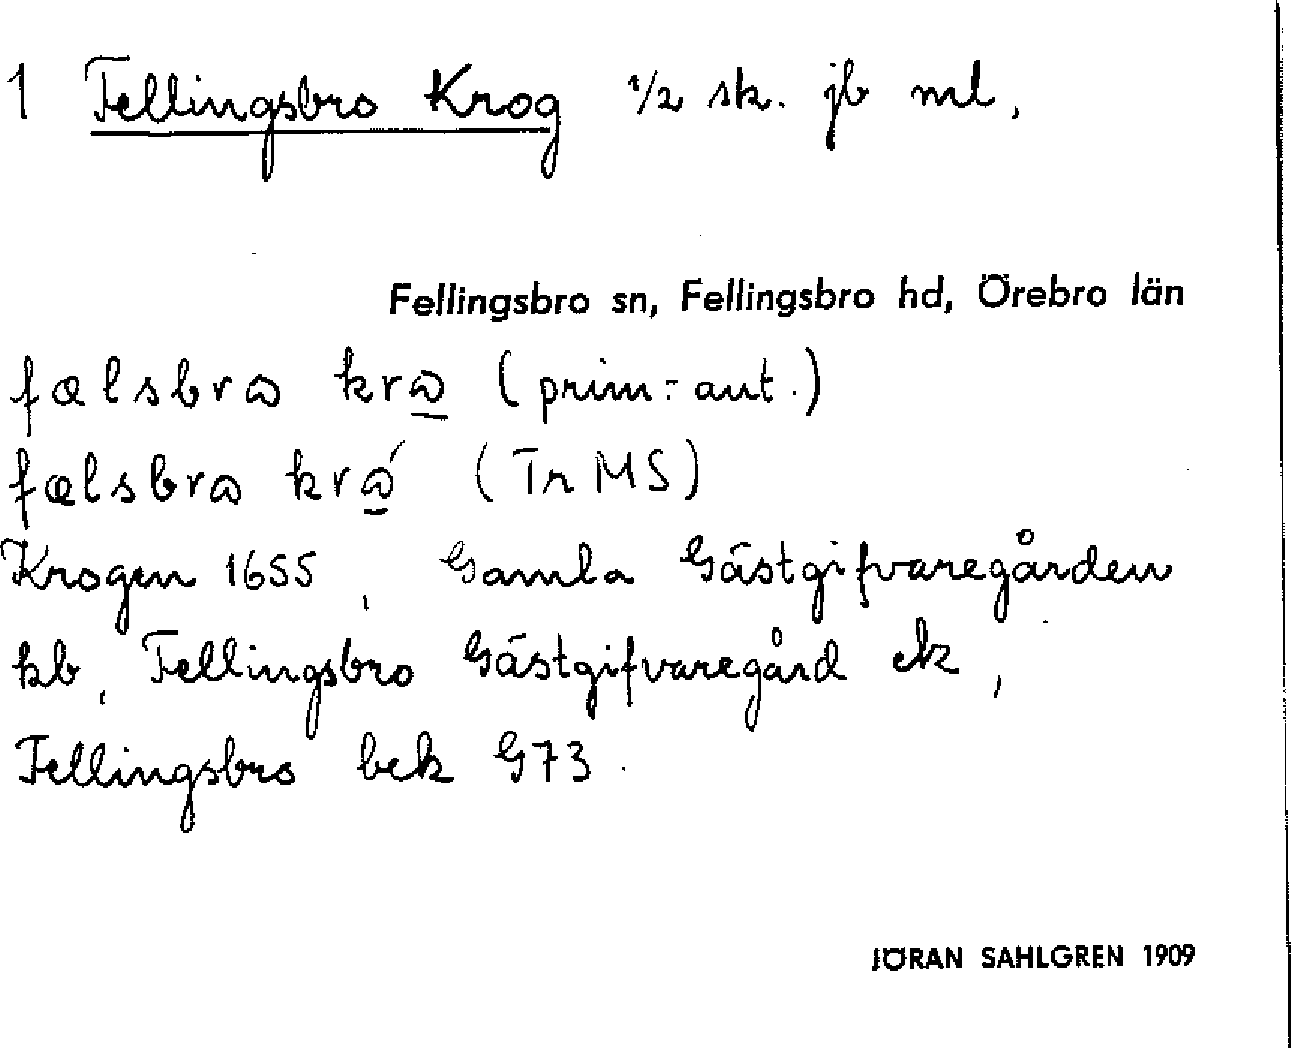 1 Fellingsbro Krog 1/2 sk. jb ml,
Fellingsbro sn, Fellingsbro hd, Örebro län
fælsbrɷ krɷ̲ (prim:-aut.)
fælsbrɷ krɷ̲́ (Tr MS)
Krogen 1655, Gamla Gästgifvaregården
kb, Fellingsbro Gästgifvaregård ek,
Fellingsbro bek G73.
JÖRAN SAHLGREN 1909